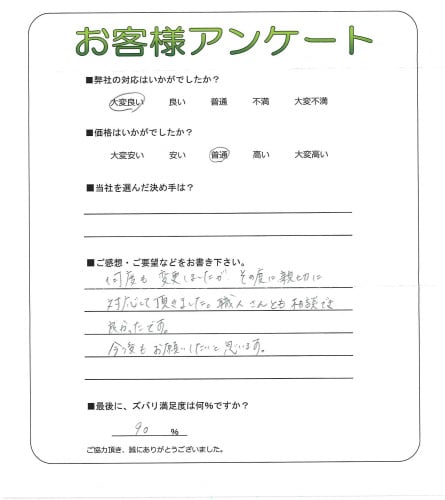 お客様アンケート
■弊社の対応はいかがでしたか?
大変良い 良い 普通 不満 大変不満
■価格はいかがでしたか?
大変安い 安い 普通 高い 大変高い
■当社を選んだ決め手は?
■ご感想・ご要望などをお書き下さい。
何度も 変更しましたが その度に親切に
対応して頂きました。職人さんとも相談でき
良かったです。
今後もお願いしたいと思います。
■最後に、ズバリ満足度は何%ですか?
90 %
ご協力頂き、誠にありがとうございました。